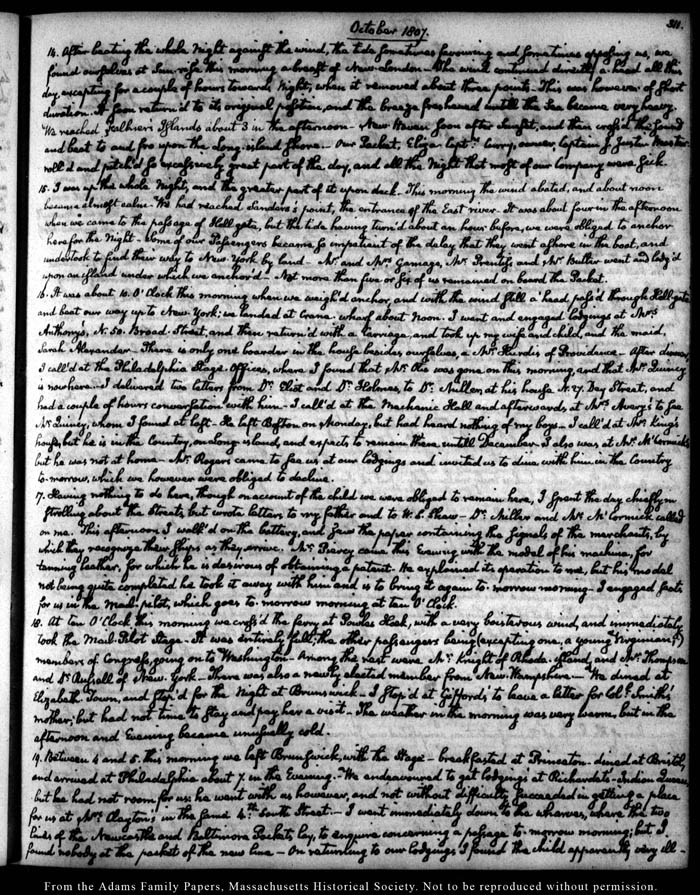 October 1807.
311.
14. After beating the whole Night against the wind, the tide sometimes favouring and sometimes opposing us, we
found ourselves at Sun-rise this morning abreast of New-London. The wind continued directly a-head all this
day, excepting for a couple of hours towards Night, when it removed about three points. This was however of short
duration. It soon return'd to its original position, and the breeze freshened untill the Sea became very heavy.
We reached Falkner's Islands about 3 in the afternoon. New Haven soon after Sunset, and then cross'd the Sound
and beat to and fro upon the Long-island shore. Our Packet, Eliza Captn. Curry, owner, Captain J. Justin Master
roll'd and pitch'd so excessively great part of the day, and all the Night that most of our Company were sick.
15. I was up the whole Night, and the greater part of it upon deck. This morning the wind abated, and about noon
became almost calm. We had reached Sandars's point, the entrance of the East river. It was about four in the afternoon
when we came to the passage of Hell gate, but the tide having turn'd about an hour before, we were obliged to anchor
here for the Night. Some of our Passengers became so impatient of the delay that they went ashore in the boat, and
undertook to find their way to New York by land. Mr. and Mrs. Gamage, Mr. Prentiss and Mr. Butler went and lodg'd
upon an island under which we anchor'd. Not more than five or six of us remained on board the Packet.
16. It was about 10. O'Clock this morning when we weigh'd anchor, and with the wind still a' head, pass'd through Hell-gate
and beat our way up to New York; we landed at Crane wharf about Noon. I went and engaged lodgings at Mrs.
Anthony's, N. 50. Broad Street, and then return'd with a Carriage, and took up my wife and child, and the maid,
Sarah Alexander. There is only one boarder in the house besides ourselves, a Mr. of Providence. After dinner
I call'd at the Philadelphia Stage Offices, where I found that Mr. Otis was gone on this morning, and that Mr. Quincy
is now here. I delivered two letters from Dr. Eliot and Dr. Holmes, to Dr. Miller, at his house N. 27. Dey Street, and
had a couple of hours conversation with him. I call'd at the Mechanic Hall and afterwards at Mrs. Avery's to see
Mr. Quincy, whom I found at last. He left Boston on Monday, but had heard nothing of my boys. I call'd at Mr. King's
house, but he is in the Country, on long island, and expects to remain there untill December. I also was at Mr. McCormick's
but he was not at home. Mr. Rogers came to see us at our lodgings and invited us to dine with him in the Country
to-morrow, which we however were obliged to decline.
17. Having nothing to do here, though on account of the child we were obliged to remain here, I spent the day chiefly in
strolling about the Streets, but wrote letters to my father and to W. S. Shaw. Dr. Miller and Mr. McCormick called
on me. This afternoon I walk'd on the battery, and saw the paper containing the signals of the merchants, by
which they recognize their Ships as they arrive. Mr. came this Evening with the model of his machine, for
tanning leather, for which he is desirous of obtaining a patent. He explained its operation to me, but his model
not being quite completed he took it away with him and is to bring it again to-morrow morning. I engaged seats
for us in the Mail-pilot, which goes to-morrow morning at ten O'Clock.
18. At ten O'Clock this morning we cross'd the ferry at Powles Hook, with a very boisterous wind, and immediately
took the Mail-Pilot Stage. It was entirely full; the other passengers being (excepting one, a young Virginian)
members of Congress, going on to Washington. Among the rest were Mr. Knight of Rhode-Island, and Mr. Thompson
and Dr. Russell of New York. There was also a newly elected member from New Hampshire. We dined at
Elizabeth Town, and stop'd for the Night at Brunswick. I stop'd at Gifford's to leave a letter for Coll. Smith's
mother, but had not time to stay and pay her a visit. The weather in the morning was very warm, but in the
afternoon and Evening became unusually cold.
19. Between 4 and 5. this morning we left Brunswick, with the Stage. breakfasted at Princeton. dined at Bristol,
and arrived at Philadelphia about 7. in the Evening. We endeavoured to get lodgings at Richardet's. Indian Queen,
but he had not room for us: he went with us however, and not without difficulty succeeded in getting a place
for us at Mrs. Clayton's, in the same 4.th South Street. I went immediately down to the wharves, where the two
lines of the Newcastle and Baltimore Packets lay, to enquire concerning a passage to-morrow morning; but I
found nobody at the packet of the new line. On returning to our lodgings I found the child apparently very ill.
From the Adams Family Papers, Massachusetts Historical Society. Not to be reproduced without permission.